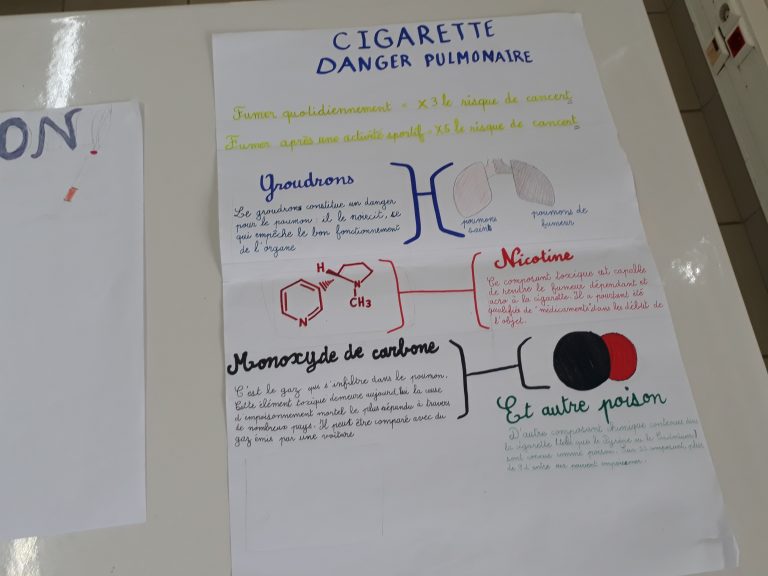 ON !
CIGARETTE
DANGER PULMONAIRE
Fumer quotidiennement = x3 le risque de cancert
Fumer après une activité sportif = x5 le risque de cancert
Groudrons
Le groudrons constitue un danger
pour le poumon : il le noircit, se
qui empêche le bon fonctionnement
de l'organe
poumons
saint
poumons de
fumeur
H
N
CH3
N
Nicotine
Ce composant toxique est capable
de rendre le fumeur dépendant et
acro à la cigarette. Il a pourtant été
qualifier de "médicaments" dans les début de
l'objet.
Monoxyde de carbone
C'est le gaz qui s'infiltre dans le poumon.
Cette élément toxique demeure aujourd'hui la cause
d'empoisonnement mortel le plus répandu à travers
de nombreux pays. Il peut être comparé avec du
gaz émis par une voiture
Et autre poison
D'autre composant chimique contenues dans
la cigarette (tel que le
sont connus comme poison. Sur composant plus
de d'entre eux peuvent empoisonner.